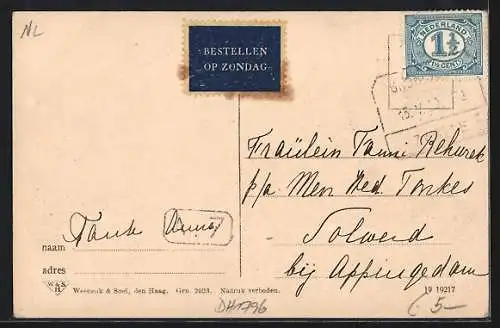 NL
BESTELLEN
OP ZONDAG
NEDERLAND
1½
1½ CENT
Fräulein Tanni Rehurek
p/a Men Wed. Tonkes
Solwerd
bij Appingedam
naam Tante Anny
adres
W & S
H
Weenenk & Snel, den Haag. Gen. 2023. Nadruk verboden.
19 19217
DH1796
5-